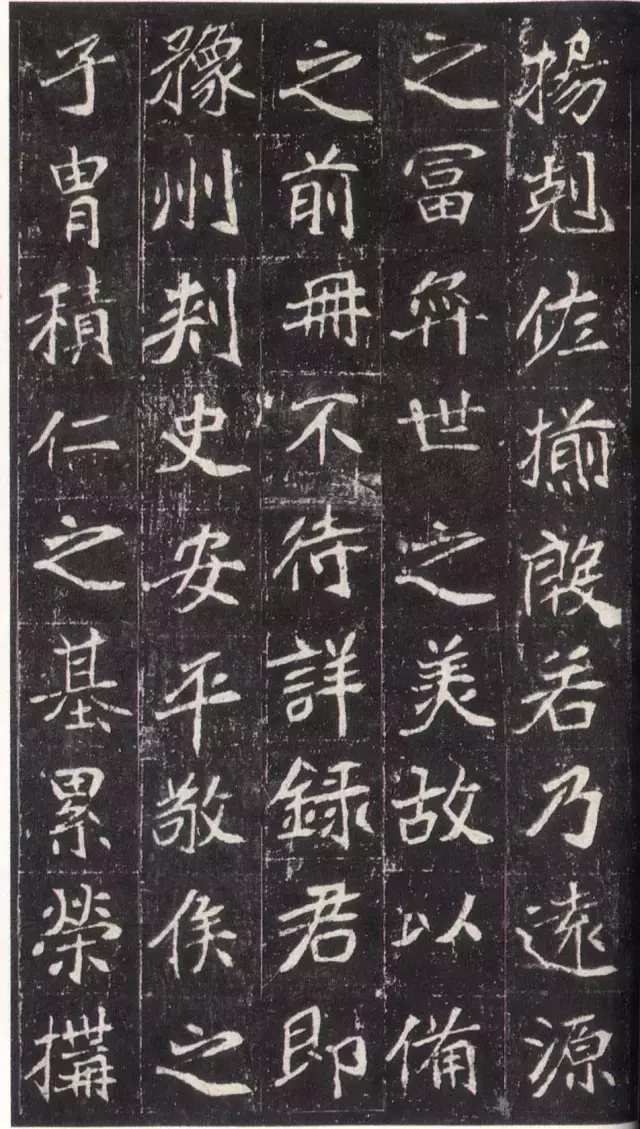 揚剋佐揃殷若乃遠源
之冨弈世之美故以備
之前冊不待詳録君即
豫州刾史安平敬侯之
子胄積仁之基累榮搆